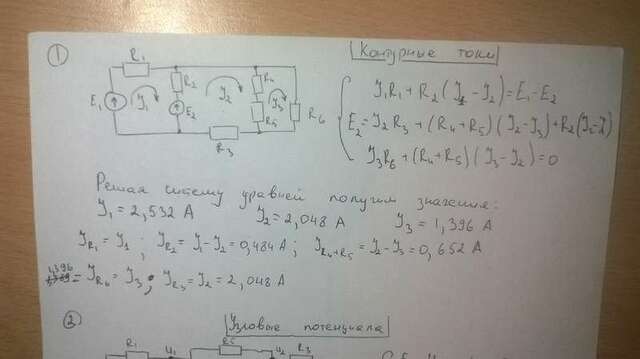 1 Контурные токи
R1
R2 R4
E1 J1 J2 J3 R6
E2 R5
R3
J1R1 + R2(J1 - J2) = E1 - E2
E2 = J2R3 + (R4+R5)(J2-J3) + R2(J2-J1)
J3R6 + (R4+R5)(J3-J2) = 0
Решая систему уравней получим значения:
J1 = 2,532 А J2 = 2,048 А J3 = 1,396 А
JR1 = J1 ; JR2 = J1-J2 = 0,484 А ; JR4+R5 = J2-J3 = 0,652 А
1,396 = JR6 = J3 ; JR3 = J2 = 2,048 А
2 Узловые потенциала
R1 U1 R5 U2 R3